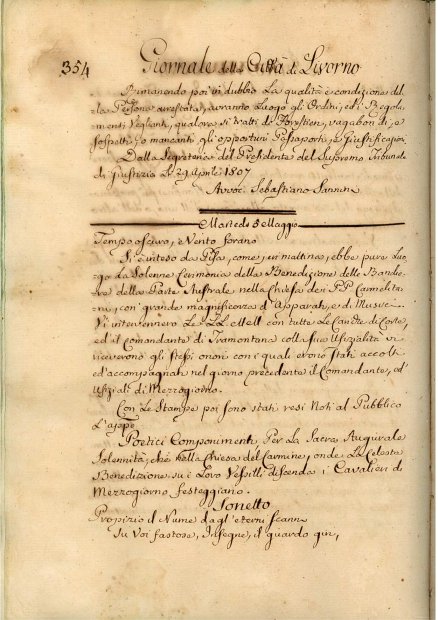 354 Giornale della Città di Livorno
Rimanendo poi in dubbio La qualità e condizione del
la Persona arrestata, avranno Luogo gli Ordini, ed i Regola
menti Veglianti, qualora si tratti di Forestieri, vagabondi, e
sospetti, o mancanti gli opportuni Passaporti, e Giustificazio
Dalla Segreteria del Presidente del Supremo Tribunale
di Giustizia Li 29 Aprile 1807
Avvoc. Sebastiano
Martedì 5 Maggio
Tempo oscuro, e Vento forano
Si è inteso da Pisa, come ieri mattina, ebbe pure Luo
go La Solenne Cerimonia della Benedizione delle Bandie
re della Parte Australe nella Chiesa dei PP. Carmelita
ni, con grande magnificenza d'Apparati, e di Musica
Vi intervennero Le LL. MM. con tutte Le Cariche di Corte,
ed il Comandante di Tramontana colla sua Ufizialità vi
riceverono gli stessi onori con i quali erono stati accolti
ed accompagnati nel giorno precedente il Comandante, ed
Ufiziali di Mezzogiorno.
Con Le Stampe poi sono stati resi Noti al Pubblico
Poetici Componimenti Per La Sacra Augurale
Solennità, che nella Chiesa del Carmine, onde La Celeste
Benedizione su i Loro Vessilli discenda i Cavalieri di
Mezzogiorno festeggiano.
Sonetto
Propizio il Nume dagl'eterni scanni
Su Voi fastose, Insegne, il guardo gira,